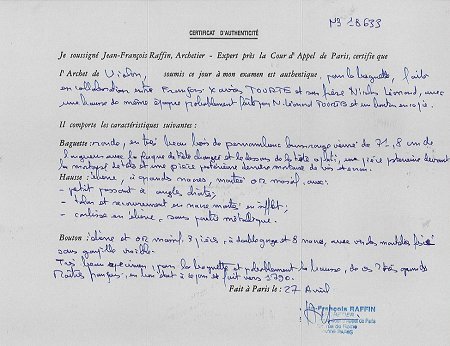 N° 18633
CERTIFICAT D'AUTHENTICITÉ
Je soussigné Jean-François Raffin, Archetier - Expert près la Cour d'Appel de Paris, certifie que
l'Archet de Violon, soumis ce jour à mon examen est authentique, pour la baguette, fait
en collaboration entre François Xavier TOURTE et son frère Nicolas Léonard, avec
une hausse de même époque probablement faite par N. Léonard TOURTE et un bouton
Il comporte les caractéristiques suivantes :
Baguette : ronde, en très beau bois de pernambouc brun rouge veiné de 71,8 cm de
longueur avec la plaque de tête changée et le dessous de la tête une pièce
la mortaise de tête et une pièce
Hausse : ébène, à grands nacres, montée OR massif, avec :
- petit passant à angles droits,
- talon et recouvrement en nacre
- coulisse en ébène, sans partie métallique.
Bouton : ébène et OR massif, 3 pièces, à double gorge et 8 nacres, avec
sans visible.
Très beau specimen, pour la baguette et probablement la hausse, de ces 2 très grands
Maîtres français, en bon état à ce jour et fait vers 1790.
Fait à Paris le : 27 Avril
J.-François RAFFIN